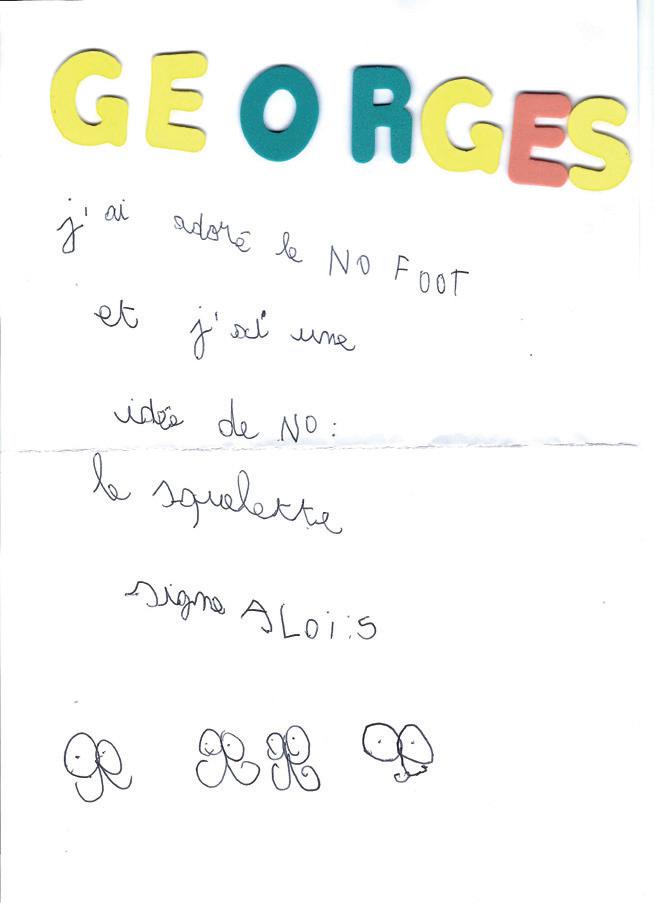 GEORGES
j'ai adoré le NO FOOT
et j'ai une
idée de NO :
le squelette
signe ALOiS